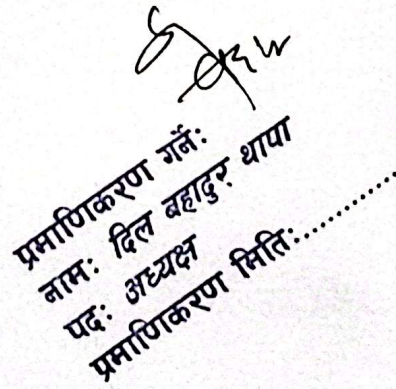 प्रमाणिकरण गर्ने:
नाम: दिल बहादुर थापा
पद: अध्यक्ष
प्रमाणिकरण मिति:..............